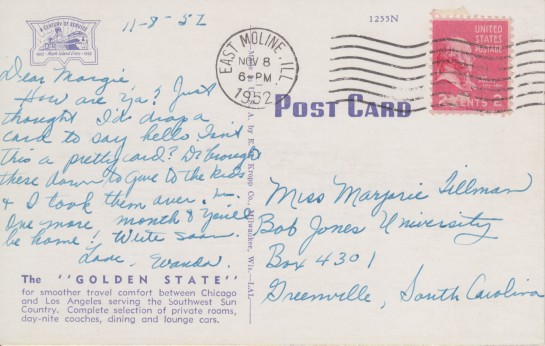 A CENTURY OF SERVICE
Rock Island Lines
11-8-52
Dear Margie
How are Ya? Just
thought I'd drop a
card to say hello Isn't
this a pretty card? D. brought
these down to give to the kids
& I took them over.
One more month & You'll
be home! Write soon.
Love, Wanda.
The "GOLDEN STATE"
for smoother travel comfort between Chicago
and Los Angeles serving the Southwest Sun
Country. Complete selection of private rooms,
day-nite coaches, dining and lounge cars.
A. by E. C. Kropp Co., Milwaukee, Wis.—LAL
1255N
EAST MOLINE, ILL.
NOV 8
6-PM
1952
UNITED
STATES
POSTAGE
2 CENTS 2
POST CARD
Miss Marjorie Tillman
Bob Jones University
Box 4301
Greenville, South Carolina